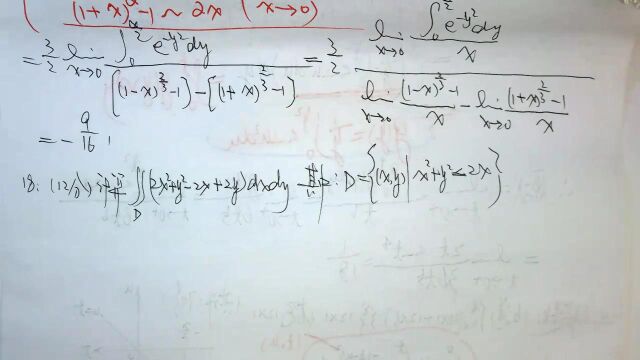 (1+x)^α-1~αx (x→0)
=\frac{3}{2}\lim_{x→0}\frac{\int_0^{\frac{x}{2}}e^{-y^2}dy}{[(1-x)^{\frac{2}{3}}-1]-[(1+x)^{\frac{2}{3}}-1]}=\frac{3}{2}\frac{\lim_{x→0}\frac{\int_0^{\frac{x}{2}}e^{-y^2}dy}{x}}{\lim_{x→0}\frac{(1-x)^{\frac{2}{3}}-1}{x}-\lim_{x→0}\frac{(1+x)^{\frac{2}{3}}-1}{x}}
=-\frac{9}{16}
18. (12分) 计算\iint_D(2x²+y²-2x+2y)dxdy D={(x,y)|x²+y²≤2x}